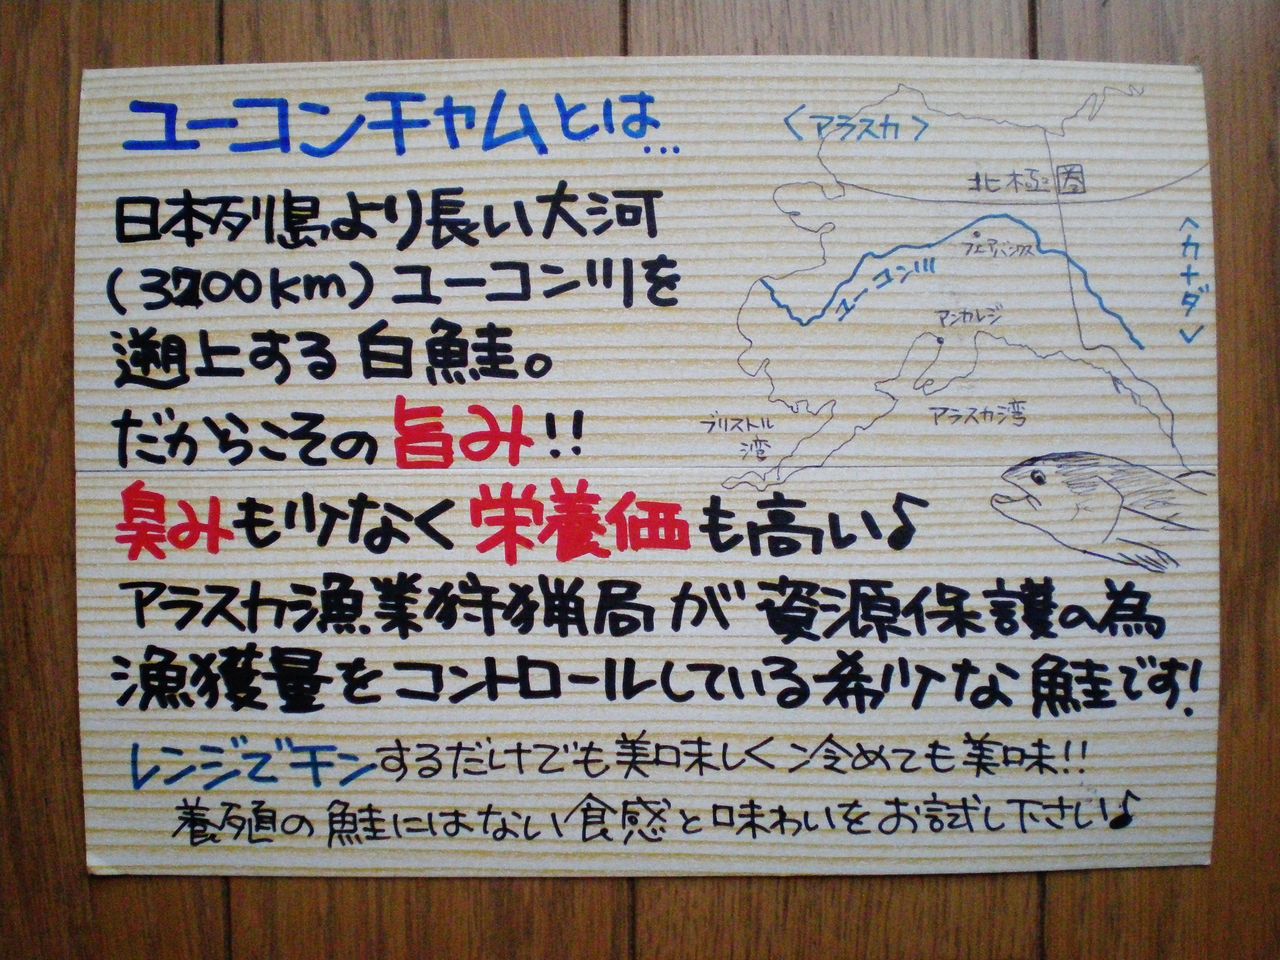 ユーコンチャムとは…
日本列島より長い大河
(3700km)ユーコン川を
遡上する白鮭。
だからこその旨み!!
臭みも少なく栄養価も高い♪
アラスカ漁業狩猟局が資源保護の為
漁獲量をコントロールしている希少な鮭です!
レンジでチンするだけでも美味しく冷めても美味!!
養殖の鮭にはない食感と味わいをお試し下さい♪
〈アラスカ〉
北極圏
〈カナダ〉
フェアバンクス
ユーコン川
アンカレジ
アラスカ湾
ブリストル
湾